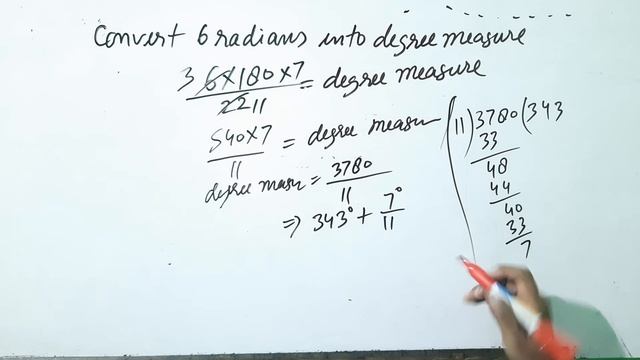 Convert 6 radians into degree measure
3 6×180×7 = degree measure
22 11
540×7 = degree measur
11
degree measu = 3780
11
⇒ 343° + 7°
11
11)3780(343
33
48
44
40
33
7